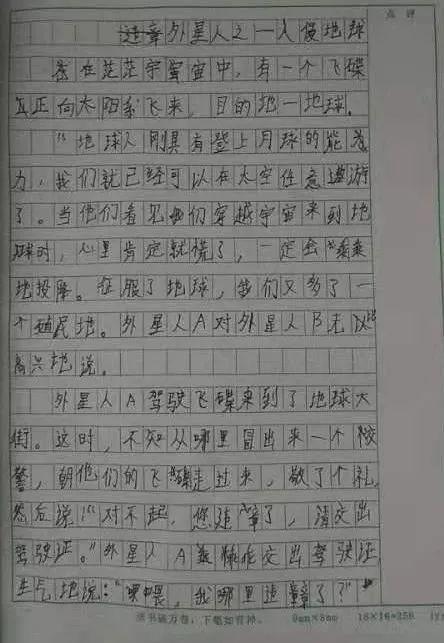 点评
违章外星人之一入侵地球
在茫茫宇宙中，有一个飞碟
正向太阳系飞来，目的地一地球。
“地球人刚具有登上月球的能
力，我们就已经可以在太空任意遨游
了。当他们看见我们穿越宇宙来到地
球时，心里肯定就慌了，一定会乖乖
地投降。征服了地球，我们又多了一
个殖民地。外星人A对外星人B
高兴地说。
外星人A驾驶飞碟来到了地球大
街。这时，不知从哪里冒出来一个校
警，朝他们的飞碟走过来，敬了个礼，
然后说“对不起，您违章了，请交出
驾驶证。”外星人A交出驾驶证
生气地说：“喂喂，我哪里违章了？”
读书破万卷，下笔如有神。 9mm×8mm 18×16=288